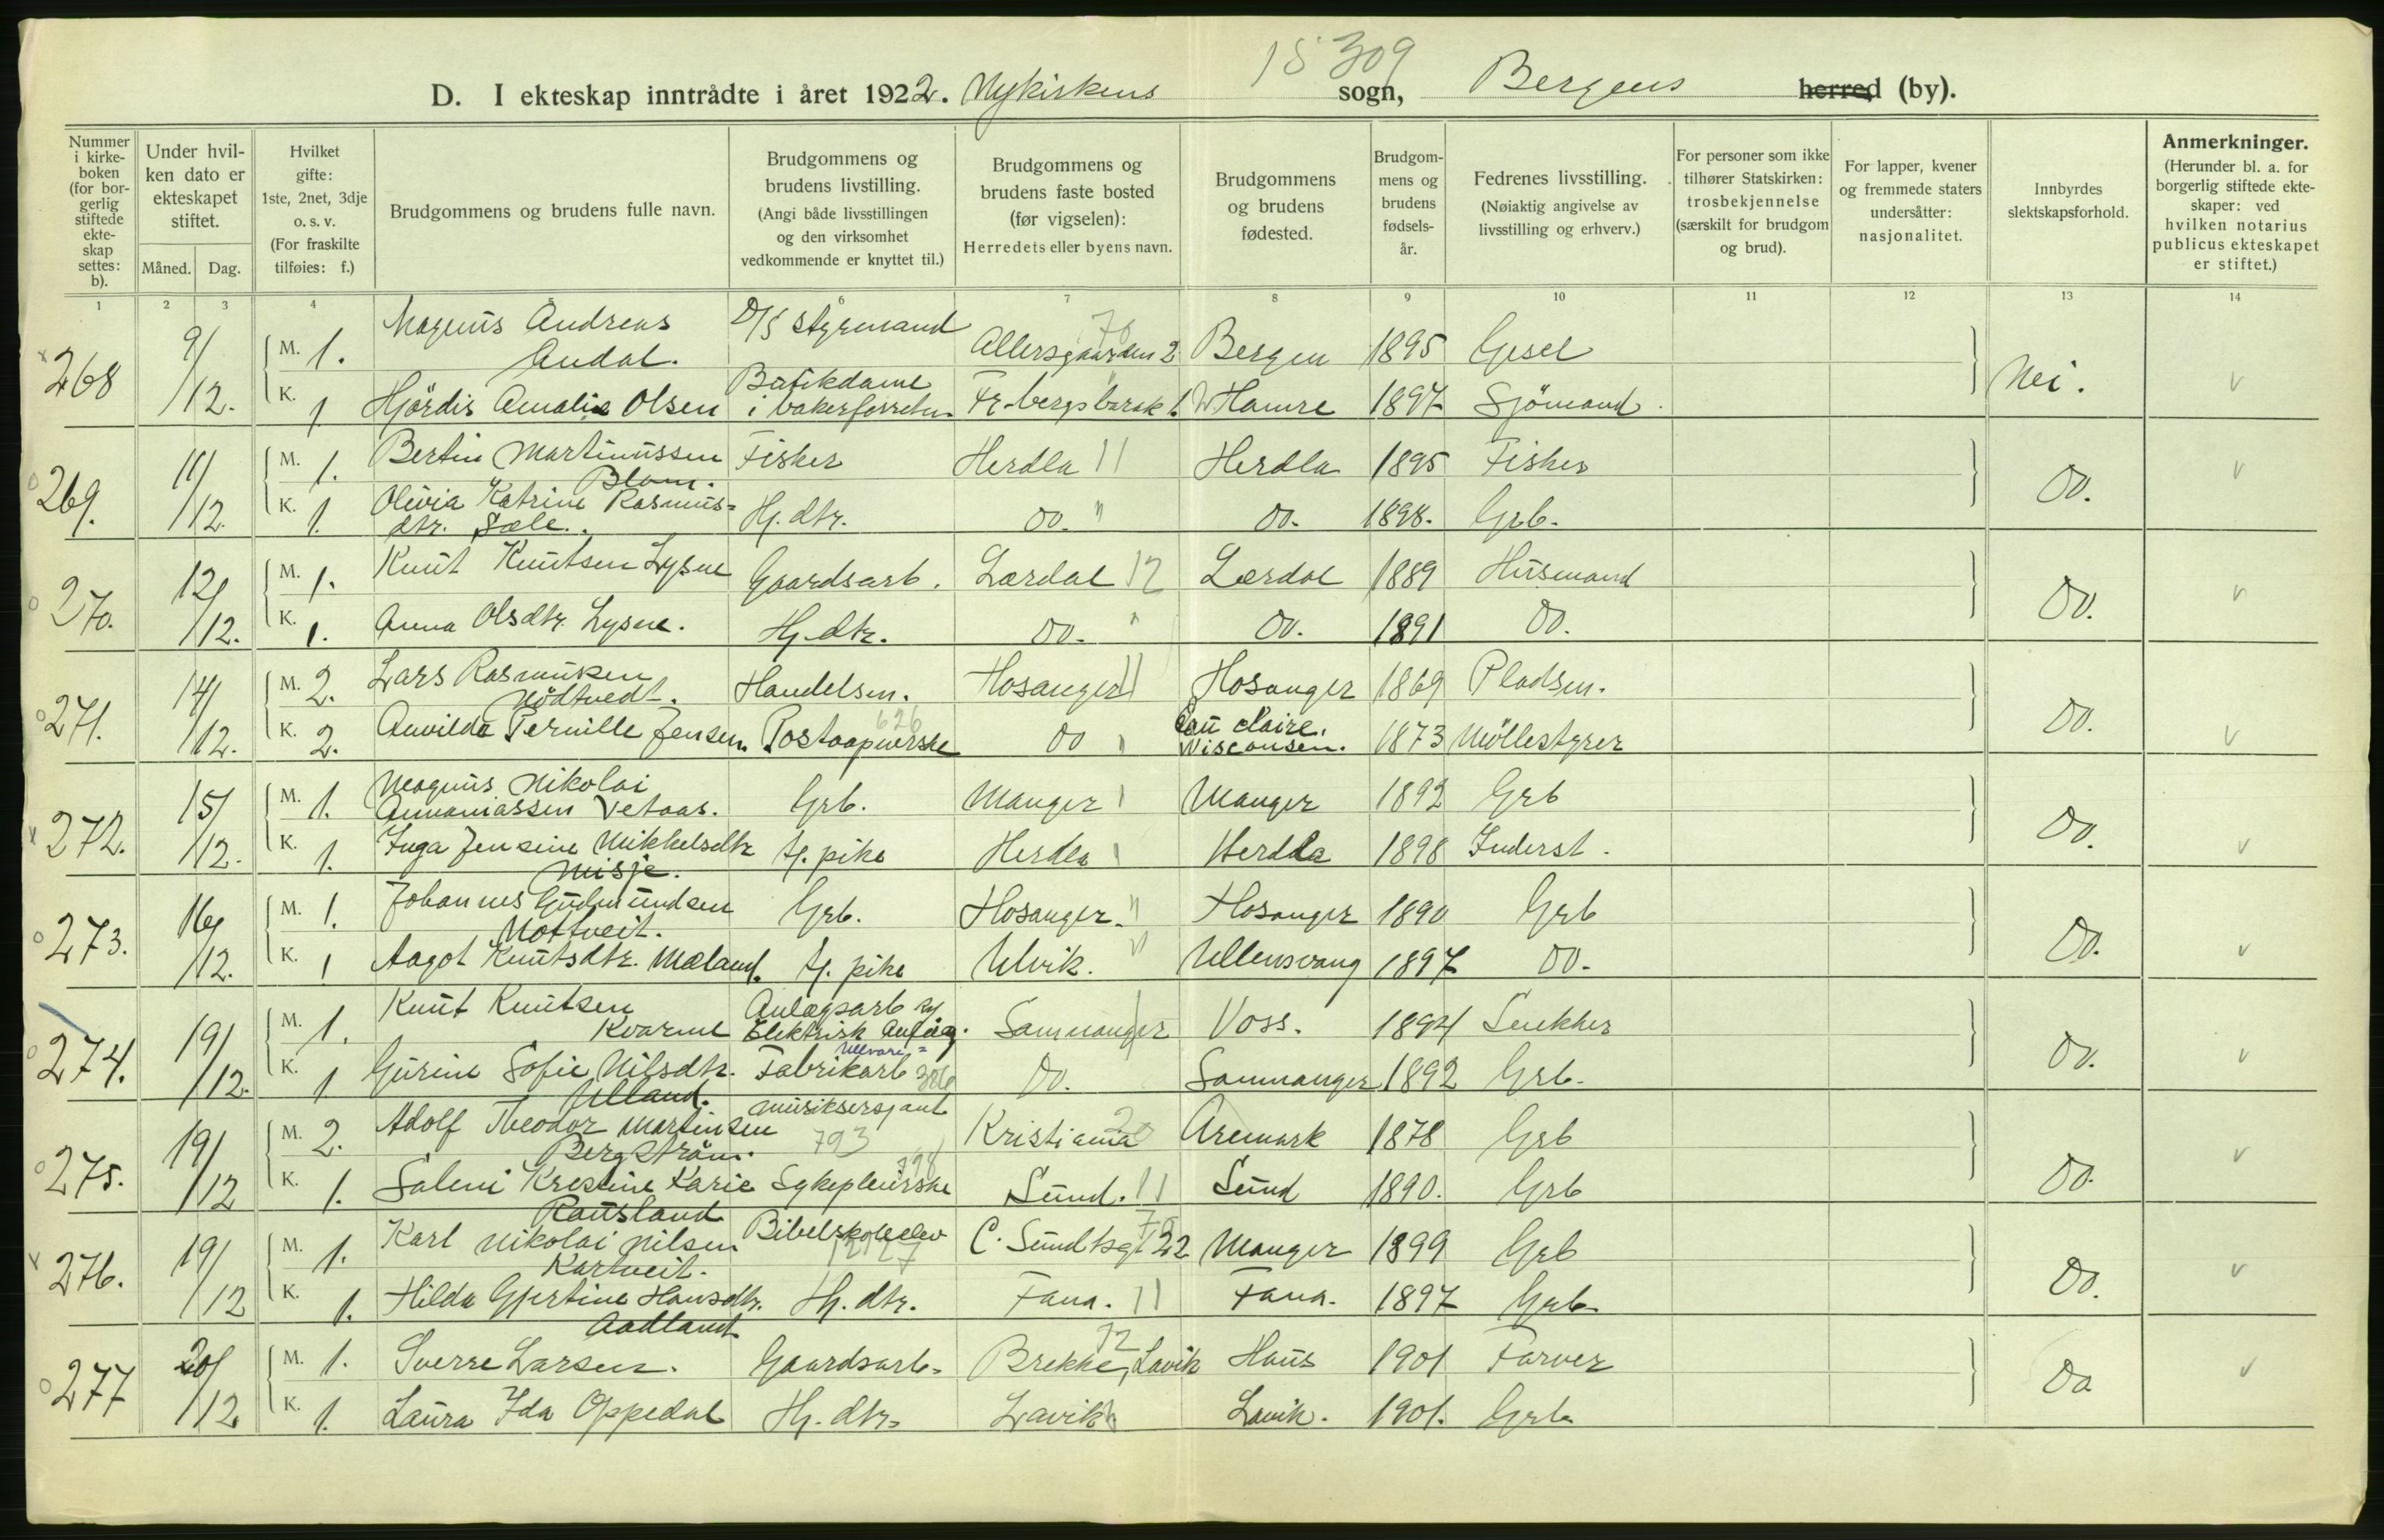 15 309
D. I ekteskap inntrådte i året 1922. Nykirkens sogn, Bergens herred (by).
Nummer i kirke-boken (for bor-gerlig stiftede ekte-skap settes: b).
Under hvil-ken dato er ekteskapet stiftet.
Måned. Dag.
Hvilket gifte: 1ste, 2net, 3dje o. s. v. (For fraskilte tilføies: f.)
Brudgommens og brudens fulle navn.
Brudgommens og brudens livstilling. (Angi både livsstillingen og den virksomhet vedkommende er knyttet til.)
Brudgommens og brudens faste bosted (før vigselen): Herredets eller byens navn.
Brudgommens og brudens fødested.
Brudgom-mens og brudens fødsels-år.
Fedrenes livsstilling. (Nøiaktig angivelse av livsstilling og erhverv.)
For personer som ikke tilhører Statskirken: trosbekjennelse (særskilt for brudgom og brud).
For lapper, kvener og fremmede staters undersåtter: nasjonalitet.
Innbyrdes slektskapsforhold.
Anmerkninger. (Herunder bl. a. for borgerlig stiftede ekte-skaper: ved hvilken notarius publicus ekteskapet er stiftet.)
1 2 3 4 6 7 8 9 10 11 12 13 14
268 9/12. M. 1. Magnus Andreas Andal. D/S styrmand Allersgaarden 2 Bergen 1895 Gesel Nei.
K. 1 Hjördis Amalie Olsen Butikdame i bakerforretn. Fr-bergs barak 1 Hamre 1897 Sjömand.
269. 11/12. M. 1. Bertin Martinussen Blom. Fisker Herdla 11 Herdla 1895 Fisker Do.
K. 1. Olivia Katrine Rasmus=dtr. Sæle. Hj. dtr. Do. " Do. 1898. Grb.
270. 12/12. M. 1. Knut Knutsen Lysne Gaardsarb. Lærdal 12 Lærdal 1889 Husmand Do.
K. 1. Anna Olsdtr. Lysne. Hj. dtr. Do. " Do. 1891 Do.
271. 14/12. M. 2. Lars Rasmussen Nödtvedt. Handelsm. Hosanger 11 Hosanger 1869 Pladsm. Do.
K. 2. Anvilda Pernille Jensen. Postaapnerske 626 Do " Eau Claire, Wisconsen. 1873 Möllestyrer
272. 15/12. M. 1. Magnus Nikolai Annaniassen Vetaas. Grb. Manger Manger 1892 Grb Do.
K. 1. Inga Jensine Mikkelsdtr Misje. Tj. pike Herdla Herdla 1898 Inderst.
273. 16/12. M. 1. Johannes Gudmundsen Mottveit. Grb. Hosanger. " Hosanger 1890 Grb Do.
K. 1 Aagot Knutsdtr. Mæland. Tj. pike Ulvik. " Ullensvang 1897 Do.
274. 19/12. M. 1. Knut Knutsen Kvarme Anlægsarb ved Elektrisk Anlæg. Samnanger Voss. 1894 Snekker Do.
K. 1 Gurine Sofie Nilsdtr. Ulland. Ullvare= Fabrikarb 386 Do. Samnanger 1892 Grb.
275. 19/12 M. 2. Adolf Theodor Martinsen Bergström. Musiksersjant 793 Kristiania 20 Aremark 1878 Grb Do.
K. 1. Salemi Krestine Karie Rausland Sykepleierske 798 Sund. 11 Sund 1890. Grb
276. 19/12 M. 1. Karl Nikolai Nilsen Kartveit. Bibelskoleelev C. Sundtsgt 22 Manger 1899 Grb Do.
K. 1. Hilda Gjertine Hansdtr. Aadland Hj. dtr. Fana. 11 Fana. 1897 Grb
277 20/12 M. 1. Sverre Larsen. Gaardsarb. Brekke, Lavik 12 Haus 1901 Farver Do
K. 1. Laura Ida Oppedal Hj. dtr. Lavik Lavik. 1901. Grb